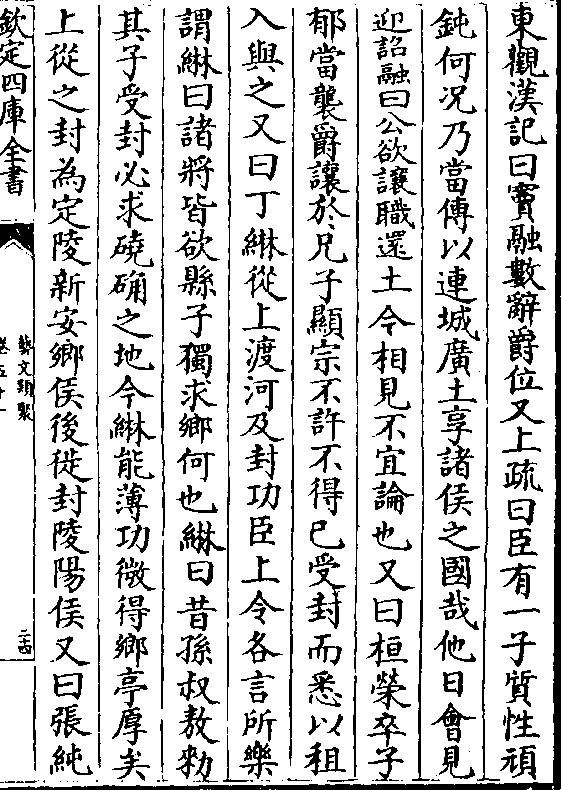 東觀漢記曰竇融數辭爵位又上疏曰臣有一子質性頑
鈍何况乃當傳以連城廣土享諸侯之國哉他日會見
迎詔融曰公欲讓職還土今相見不宜論也又曰桓榮卒子
郁當襲爵讓於兄子顯宗不許不得已受封而悉以租
入與之又曰丁綝從上渡河及封功臣上令各言所樂
謂綝曰諸將皆欲縣子獨求鄉何也綝曰昔孫叔敖勑
其子受封必求磽确之地今綝能薄功微得鄉亭厚矣
上從之封為定陵新安鄉侯後徙封陵陽侯又曰張純
欽定四庫全書
藝文類聚
卷五十一
二十四